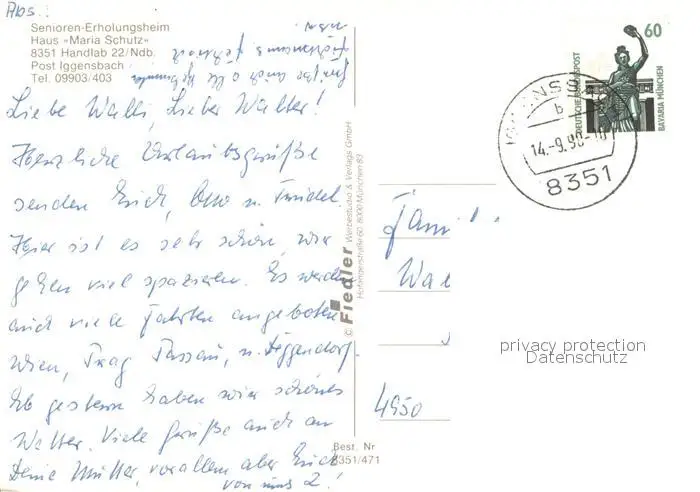 Abs.:
Senioren-Erholungsheim
Haus »Maria Schutz«
8351 Handlab 22/Ndb.
Post Iggensbach
Tel. 09903/403
Liebe Walli, Lieber Walter!
Herzliche Urlaubsgrüße
senden Euch, Otto u. Traudel.
Hier ist es sehr schön, wir
gehen viel spazieren. Es werden
auch viele Fahrten angeboten
Wien, Prag Passau, u. Deggendorf.
Ab gestern haben wir schönes
Wetter. Viele Grüße auch an
Deine Mutter, vor allem aber Euch
von uns 2!
© Fiedler Werbestudio & Verlags GmbH
8000 München 83
Best. Nr
8351/471
60
DEUTSCHE BUNDESPOST
BAVARIA MÜNCHEN
b
14.-9.90-10
8351
Fam
Wa
4950
privacy protection
Datenschutz